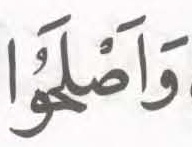 وَاَصْلَحُوْا